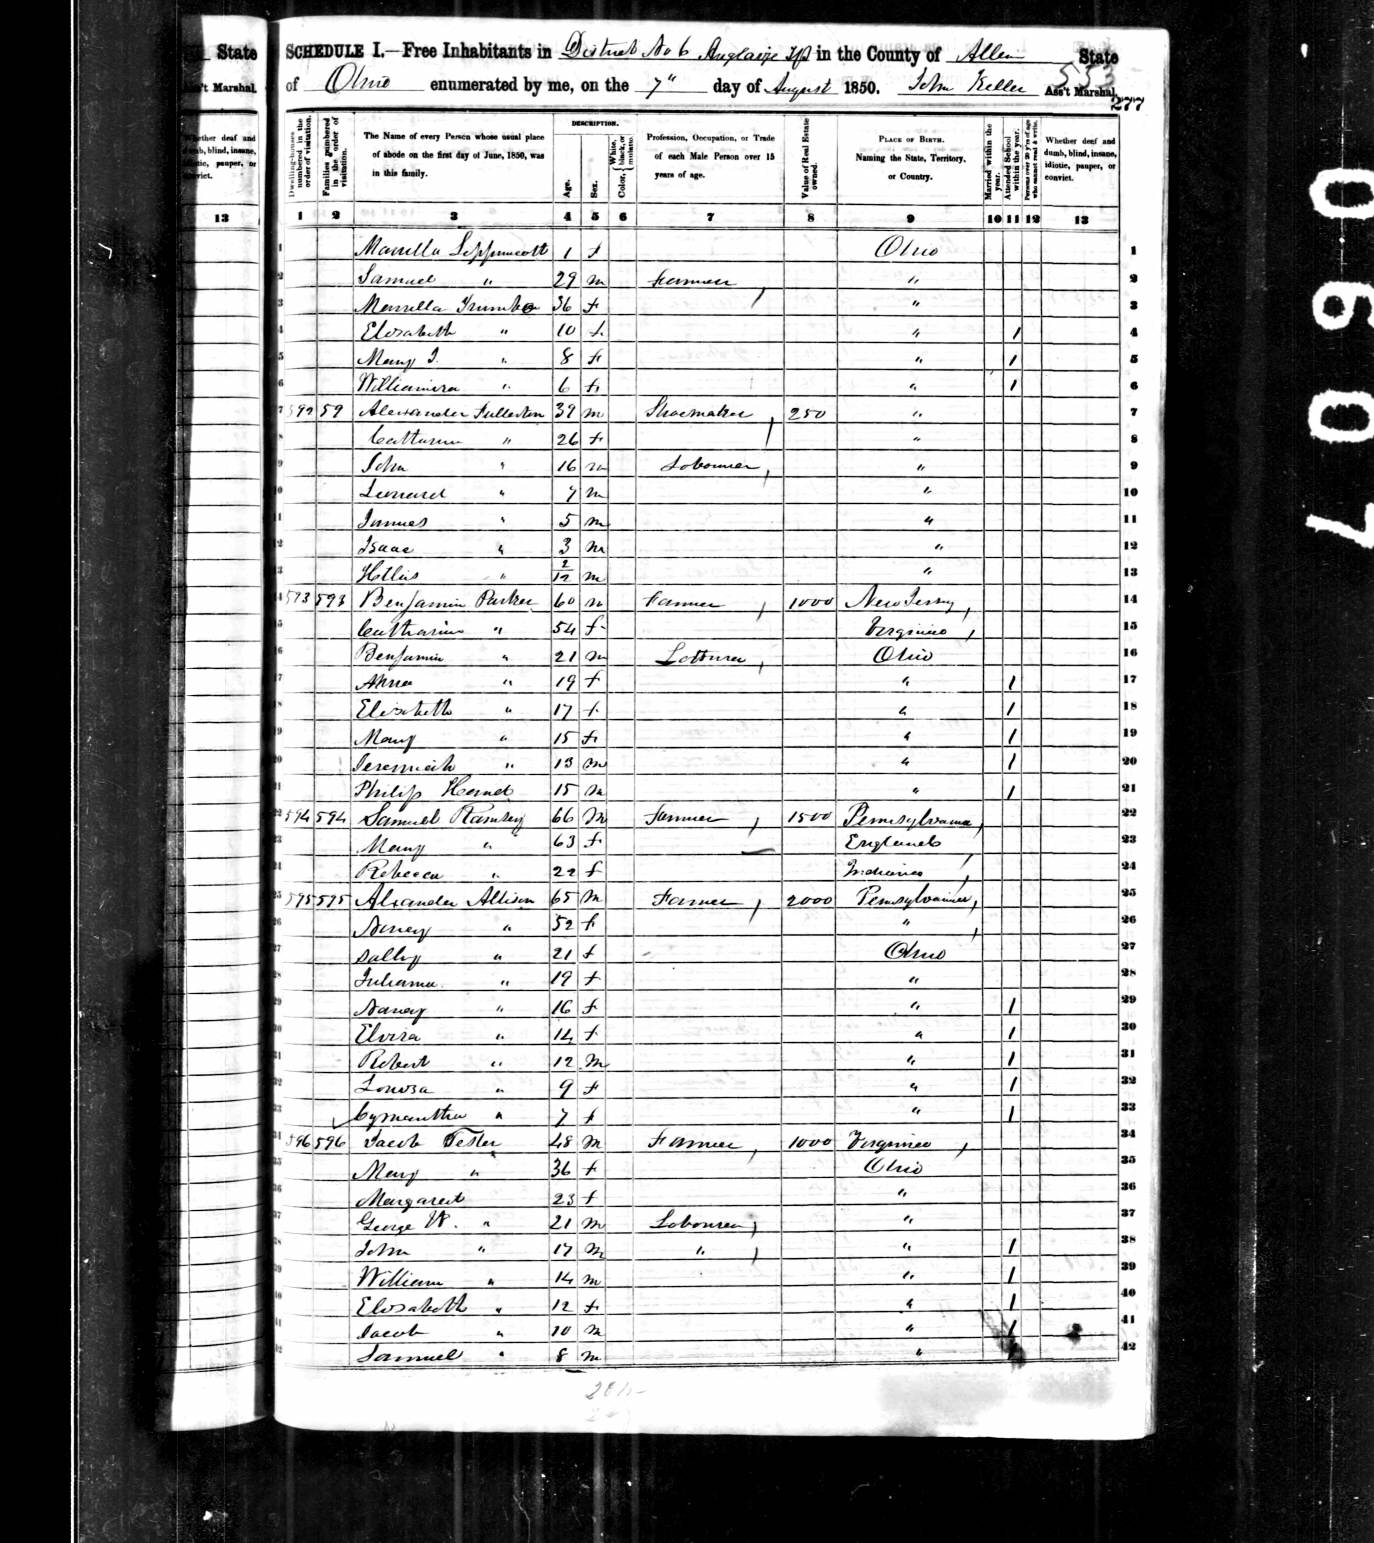 State
Ass't Marshal.
Whether deaf and dumb, blind, insane, idiotic, pauper, or convict.
13
SCHEDULE I.—Free Inhabitants in District No 6 Auglaize Tp in the County of Allen State
of Ohio enumerated by me, on the 7" day of August 1850. John Keller Ass't Marshal.
553
277
Dwelling-houses numbered in the order of visitation.
Families numbered in the order of visitation.
The Name of every Person whose usual place of abode on the first day of June, 1850, was in this family.
DESCRIPTION.
Age.
Sex.
Color, White, black, or mulatto.
Profession, Occupation, or Trade of each Male Person over 15 years of age.
Value of Real Estate owned.
PLACE OF BIRTH. Naming the State, Territory, or Country.
Married within the year.
Attended School within the year.
Persons over 20 y'rs of age who cannot read & write.
Whether deaf and dumb, blind, insane, idiotic, pauper, or convict.
1 2 3 4 5 6 7 8 9 10 11 12 13
1 Lippincott 1 f Ohio 1
2 Samuel " 29 m Farmer " 2
3 36 f " 3
4 Elizabeth " 10 f " 1 4
5 Mary J. " 8 f " 1 5
6 " 6 f " 1 6
7 592 59 Alexander Fullerton 39 m Shoemaker 250 " 7
8 Catharine " 26 f " 8
9 John " 16 m Labourer " 9
10 Leonard " 7 m " 10
11 James " 5 m " 11
12 Isaac " 3 m " 12
13 " 2/12 m " 13
14 593 593 Benjamin Parker 60 m Farmer 1000 New Jersey 14
15 Catharine " 54 f Virginia 15
16 Benjamin " 21 m Labourer Ohio 16
17 Anna " 19 f " 1 17
18 Elizabeth " 17 f " 1 18
19 Mary " 15 f " 1 19
20 Jeremiah " 13 m " 1 20
21 Philip 15 m " 1 21
22 594 594 Samuel Ramsey 66 m Farmer 1500 Pennsylvania 22
23 Mary " 63 f England 23
24 Rebecca " 22 f Indiana 24
25 595 595 Alexander Allison 65 m Farmer 2000 Pennsylvania 25
26 Nancy " 52 f " 26
27 Sally " 21 f Ohio 27
28 Julianna " 19 f " 28
29 Nancy " 16 f " 1 29
30 Elvira " 14 f " 1 30
31 Robert " 12 m " 1 31
32 Louisa " 9 f " 1 32
33 Cymantha " 7 f " 1 33
34 596 596 Jacob Tester 48 m Farmer 1000 Virginia 34
35 Mary " 36 f Ohio 35
36 Margaret 23 f " 36
37 George W. " 21 m Labourer " 37
38 John " 17 m " " 1 38
39 William " 14 m " 1 39
40 Elizabeth " 12 f " 1 40
41 Jacob " 10 m " 1 41
42 Samuel " 8 m " 1 42
0607